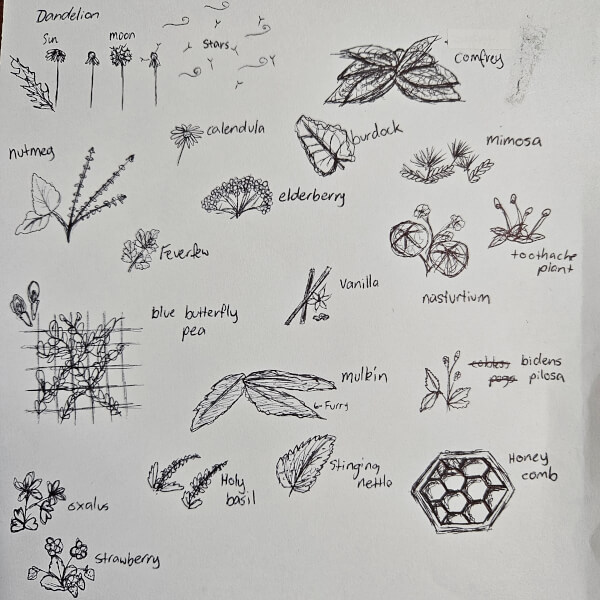 Dandelion
Sun
moon
stars
comfrey
calendula
burdock
mimosa
nutmeg
elderberry
toothache
plant
Feverfew
nasturtium
vanilla
blue butterfly
pea
mulkin
← Furry
bidens
pilosa
Honey
comb
Stinging
nettle
Holy
basil
oxalus
strawberry